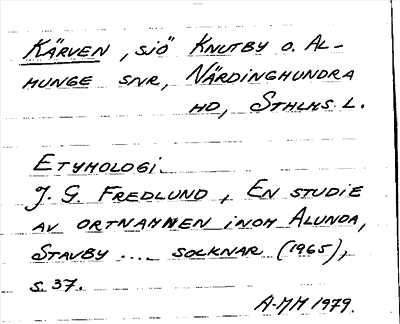 KÄRVEN, SJÖ KNUTBY O. AL-
MUNGE SNR, NÄRDINGHUNDRA
HD, STHLMS L.
ETYMOLOGI.
J. G. FREDLUND, EN STUDIE
AV ORTNAMNEN INOM ALUNDA,
STAVBY .... SOCKNAR (1965),
S. 37.
A-MM 1979.